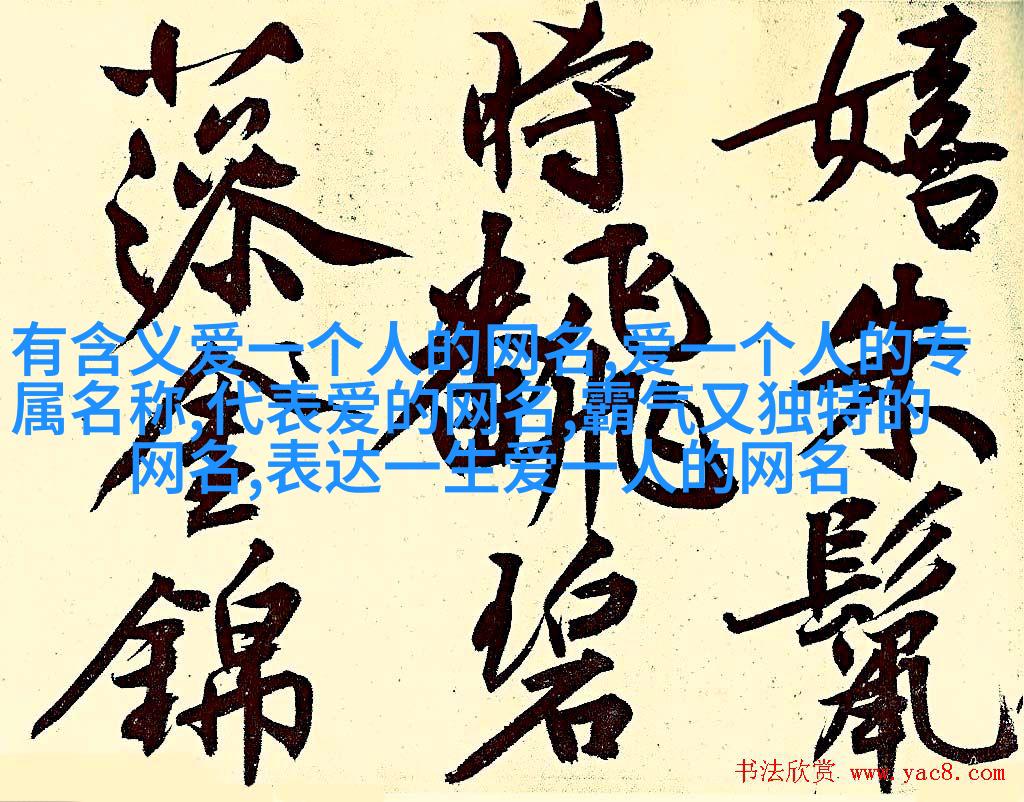 嬉朱鬣
時飜碧
藻金錦
有含义爱一个人的网名,爱一个人的专
属名称,代表爱的网名,霸气又独特的
网名,表达一生爱一人的网名
书法欣赏 www.yac8.com